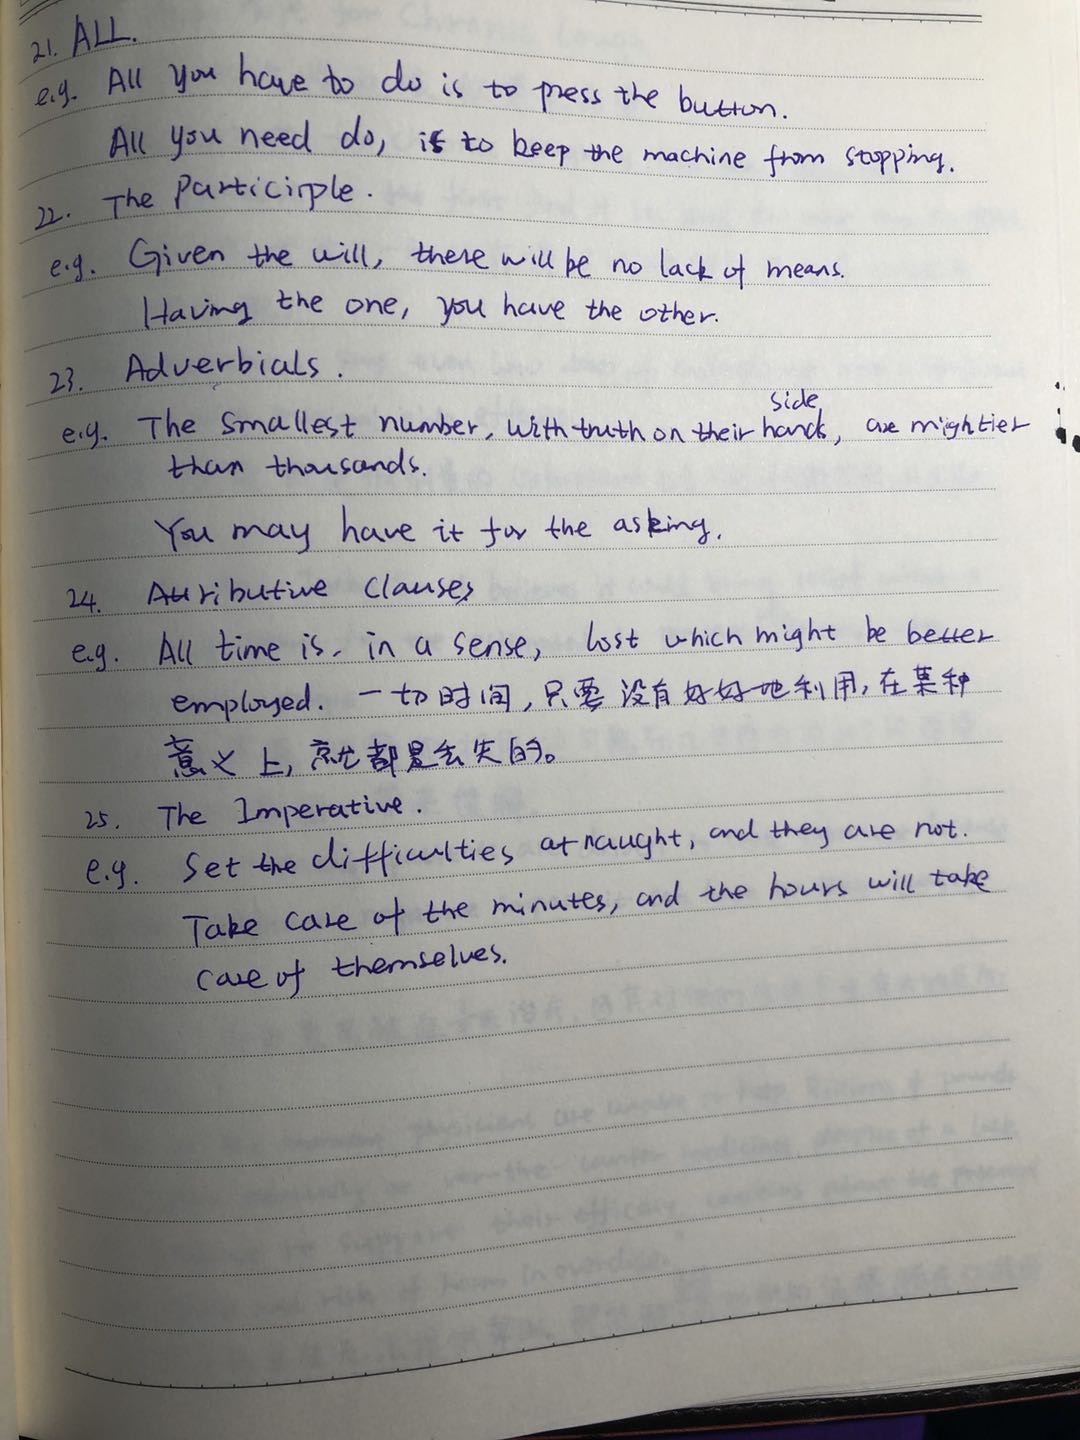 21. ALL.
e.g. All you have to do is to press the button.
All you need do, is to keep the machine from stopping.
22. The Particirple.
e.g. Given the will, there will be no lack of means.
Having the one, you have the other.
23. Adverbials.
side
e.g. The smallest number, with truth on their hands, are mightier
than thousands.
You may have it for the asking.
24. Attributive Clauses
e.g. All time is, in a sense, lost which might be better
employed. 一切时间,只要没有好好地利用,在某种
意义上,就都是丢失的。
25. The Imperative.
e.g. Set the difficulties at naught, and they are not.
Take care of the minutes, and the hours will take
care of themselves.